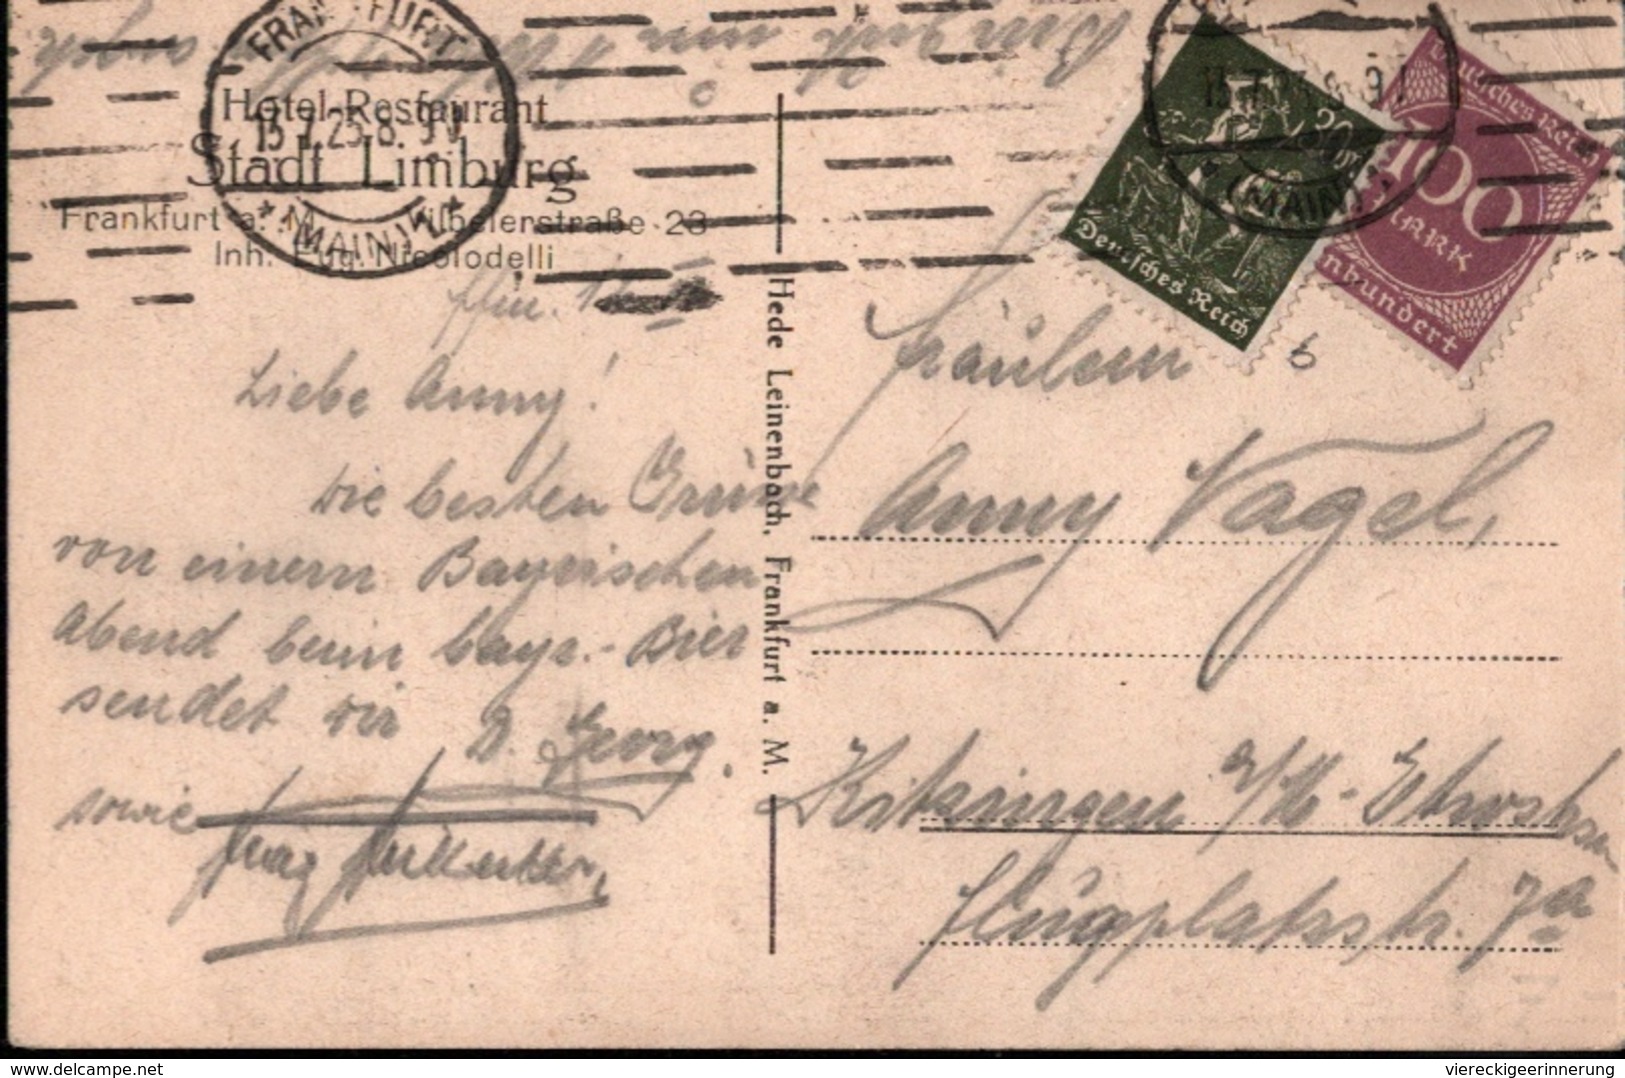 FRANKFURT
13.7.23.8-9 N
* (MAIN) *
* (MAIN) *
Hotel-Restaurant
Stadt Limburg
Frankfurt a. M. Vilbelerstraße 23
Inh. Eug. Nicolodelli
Liebe Anny!
Die besten Grüße
von einem Bayerischen
Abend beim bayr.-Bier
sendet dir D. Georg.
sowie
Hede Leinenbach, Frankfurt a. M.
20 M
Deutsches Reich
Deutsches Reich
100
MARK
Einhundert
6
Fräulein
Anny Vagel,
Kitzingen a/M-Etwashsn
Flugplatzstr. 7a
delcampe.net
viereckigeerinnerung